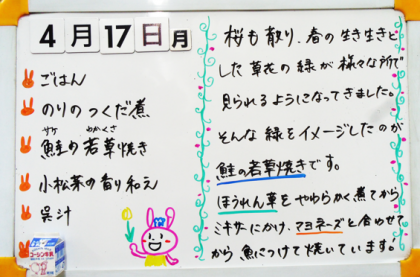 4月17日月
ごはん
のりのつくだ煮
サケ わかくさ
鮭の若草焼き
小松菜の香り和え
呉汁
桜も散り、春の生き生きと
した草花の緑が様々な所で
見られるようになってきました。
そんな緑をイメージしたのが
鮭の若草焼きです。
ほうれん草をやわらかく煮てから
ミキサーにかけ、マヨネーズと合わせて
から魚につけて焼いています。